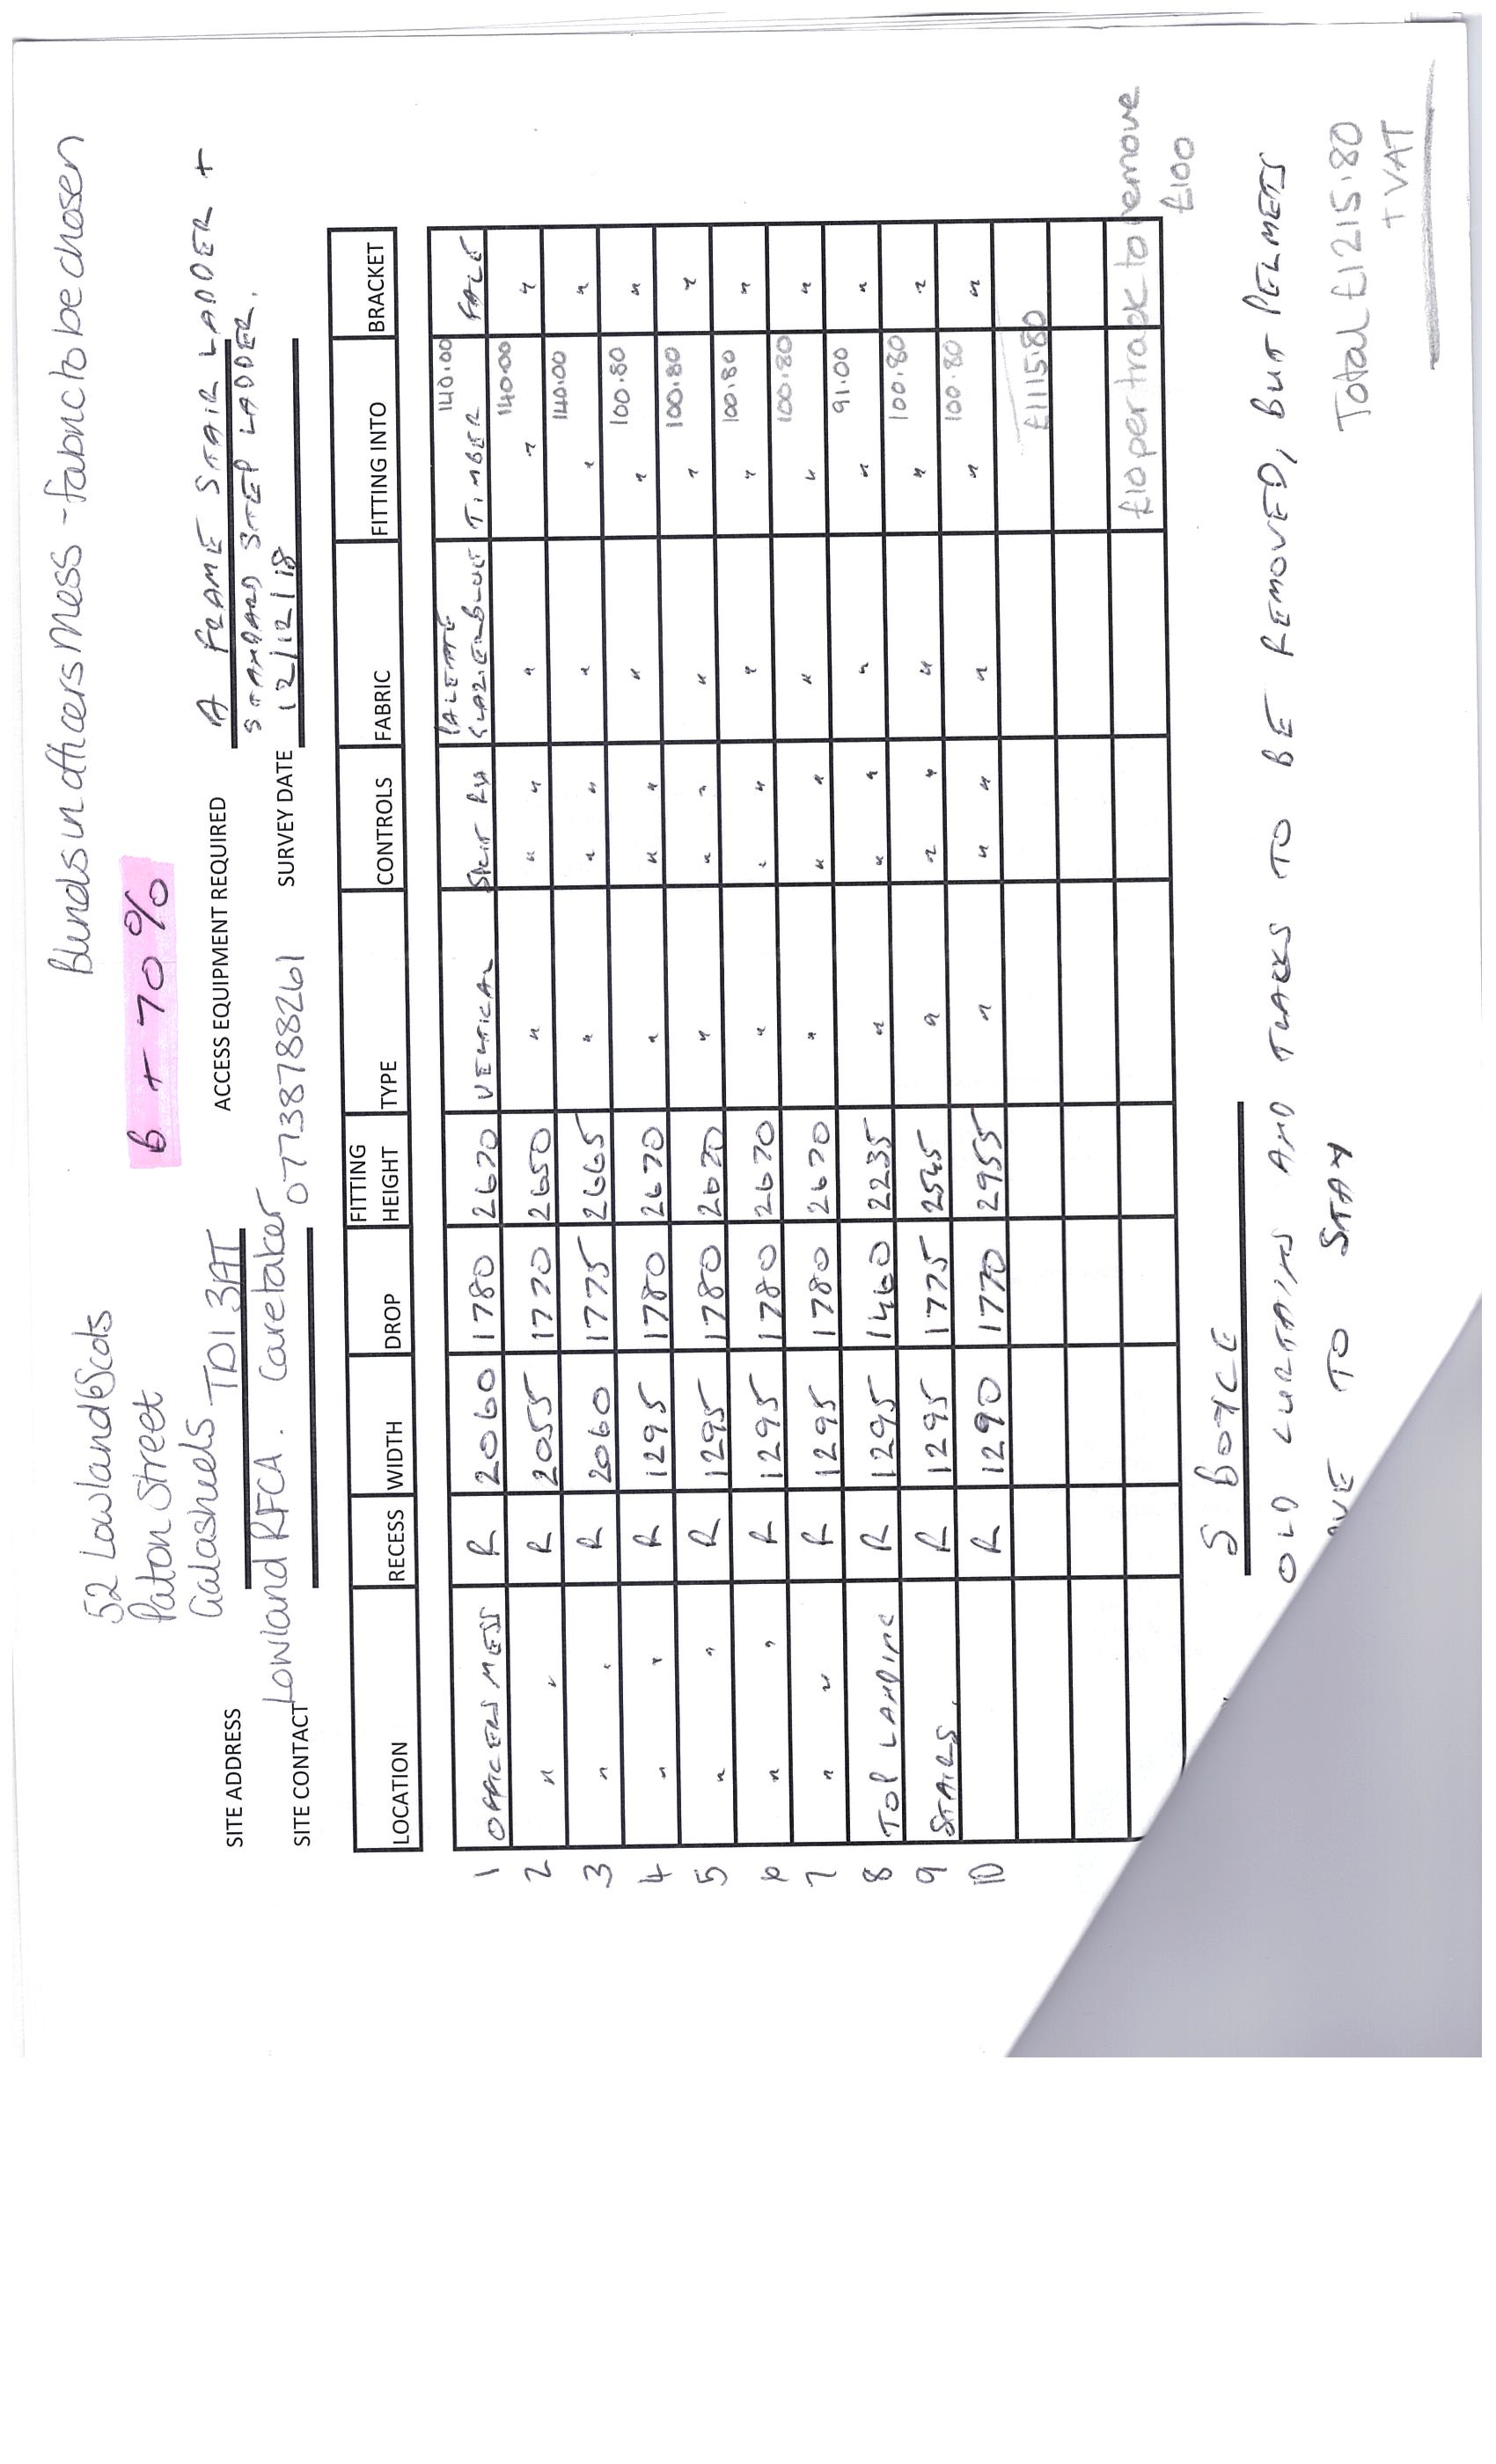 Blinds in officers Mess - fabric to be chosen
52 Lowland 6 Scots
Paton Street
Galashiels TD1 3AT
B + 70%
SITE ADDRESS
ACCESS EQUIPMENT REQUIRED A FRAME STAIR LADDER +
STANDARD STEP LADDER.
SITE CONTACT Lowland RFCA. Caretaker 07738788261 SURVEY DATE 12/12/18
LOCATION RECESS WIDTH DROP FITTING HEIGHT TYPE CONTROLS FABRIC FITTING INTO BRACKET
1 OFFICERS MESS R 2060 1780 2670 VERTICAL SPLIT RH PALETTE GLAZIER BLUE TIMBER 140.00 FACE
2 " " R 2055 1770 2650 " " " " " 140.00 "
3 " " R 2060 1775 2665 " " " " " 140.00 "
4 " " R 1295 1780 2670 " " " " " 100.80 "
5 " " R 1295 1780 2670 " " " " " 100.80 "
6 " " R 1295 1780 2670 " " " " " 100.80 "
7 " " R 1295 1780 2670 " " " " " 100.80 "
8 TOP LANDING R 1295 1460 2235 " " " " " 91.00 "
9 STAIRS R 1295 1775 2545 " " " " " 100.80 "
10 R 1290 1770 2955 " " " " " 100.80 "
£1115.80
£10 per track to remove
£100
S BOYCE
OLD CURTAINS AND TRACKS TO BE REMOVED, BUT PELMETS
AVE TO STAY
Total £1215.80
+ VAT